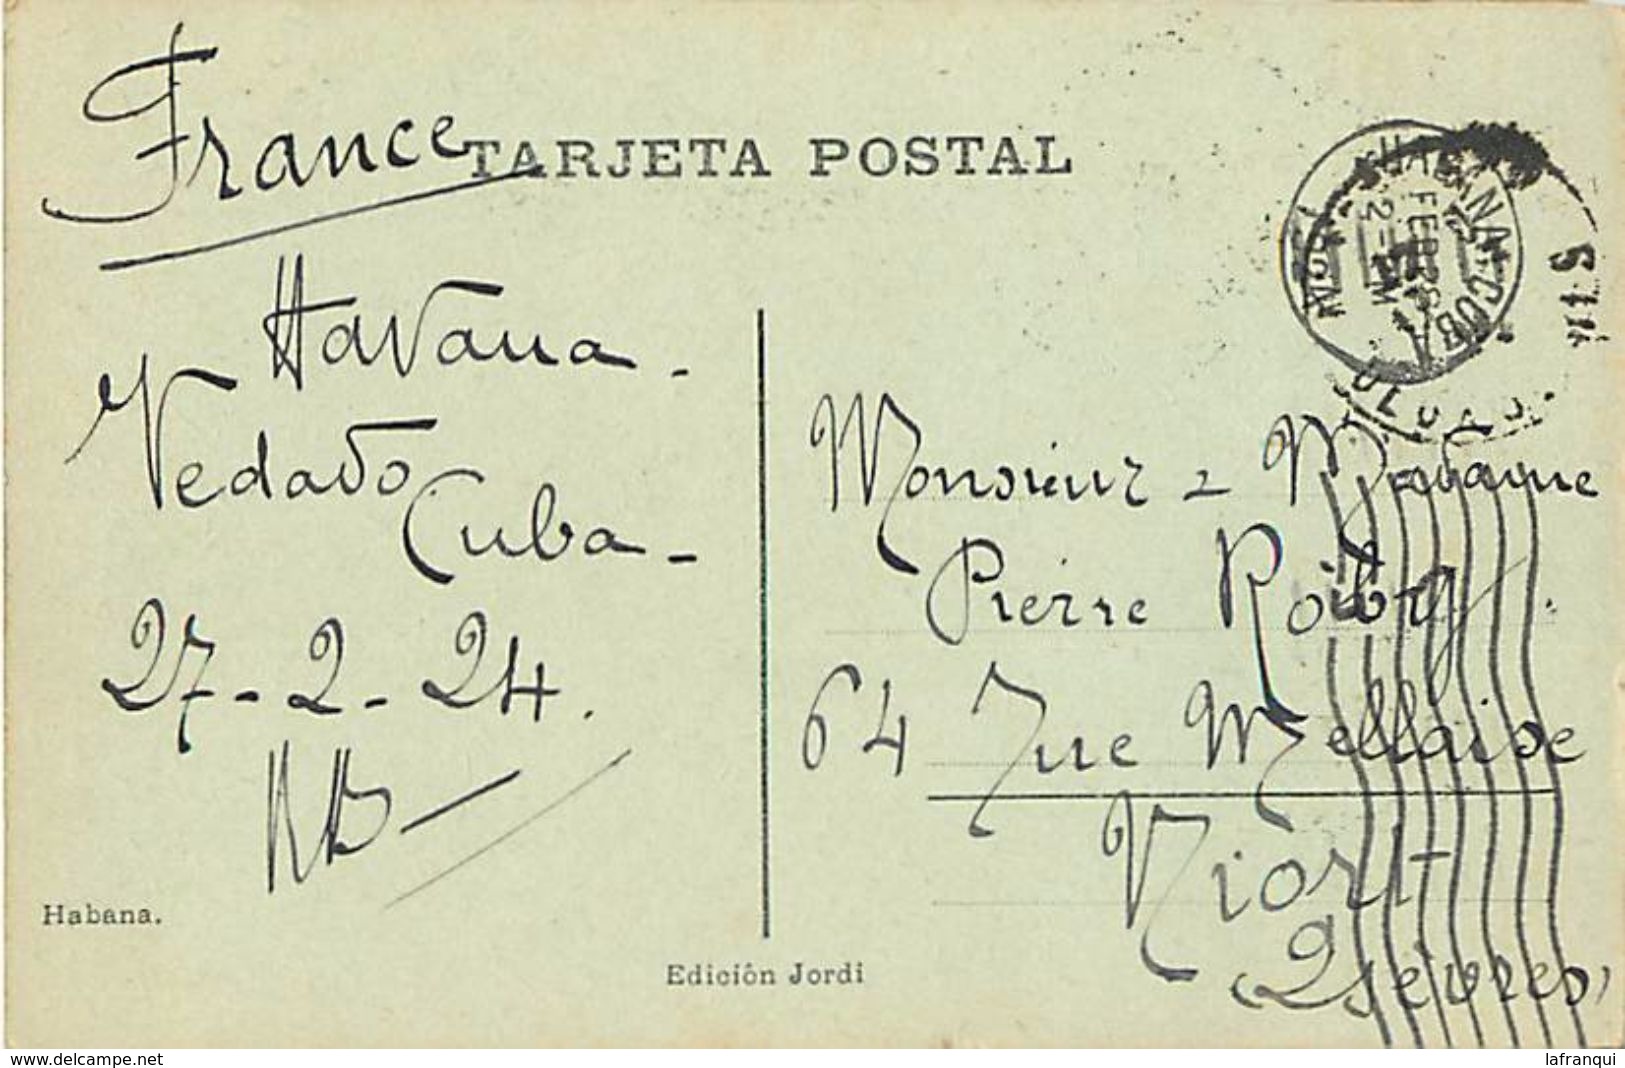 France
TARJETA POSTAL
HABANA, CUBA
FEB
2-PM
Havana.
Vedado
Cuba-
27-2-24.
Monsieur & Madame
Pierre Roiby
64 rue Mellaise
Niort
(2 Sèvres)
Habana.
Edición Jordi
www.delcampe.net
lafranqui